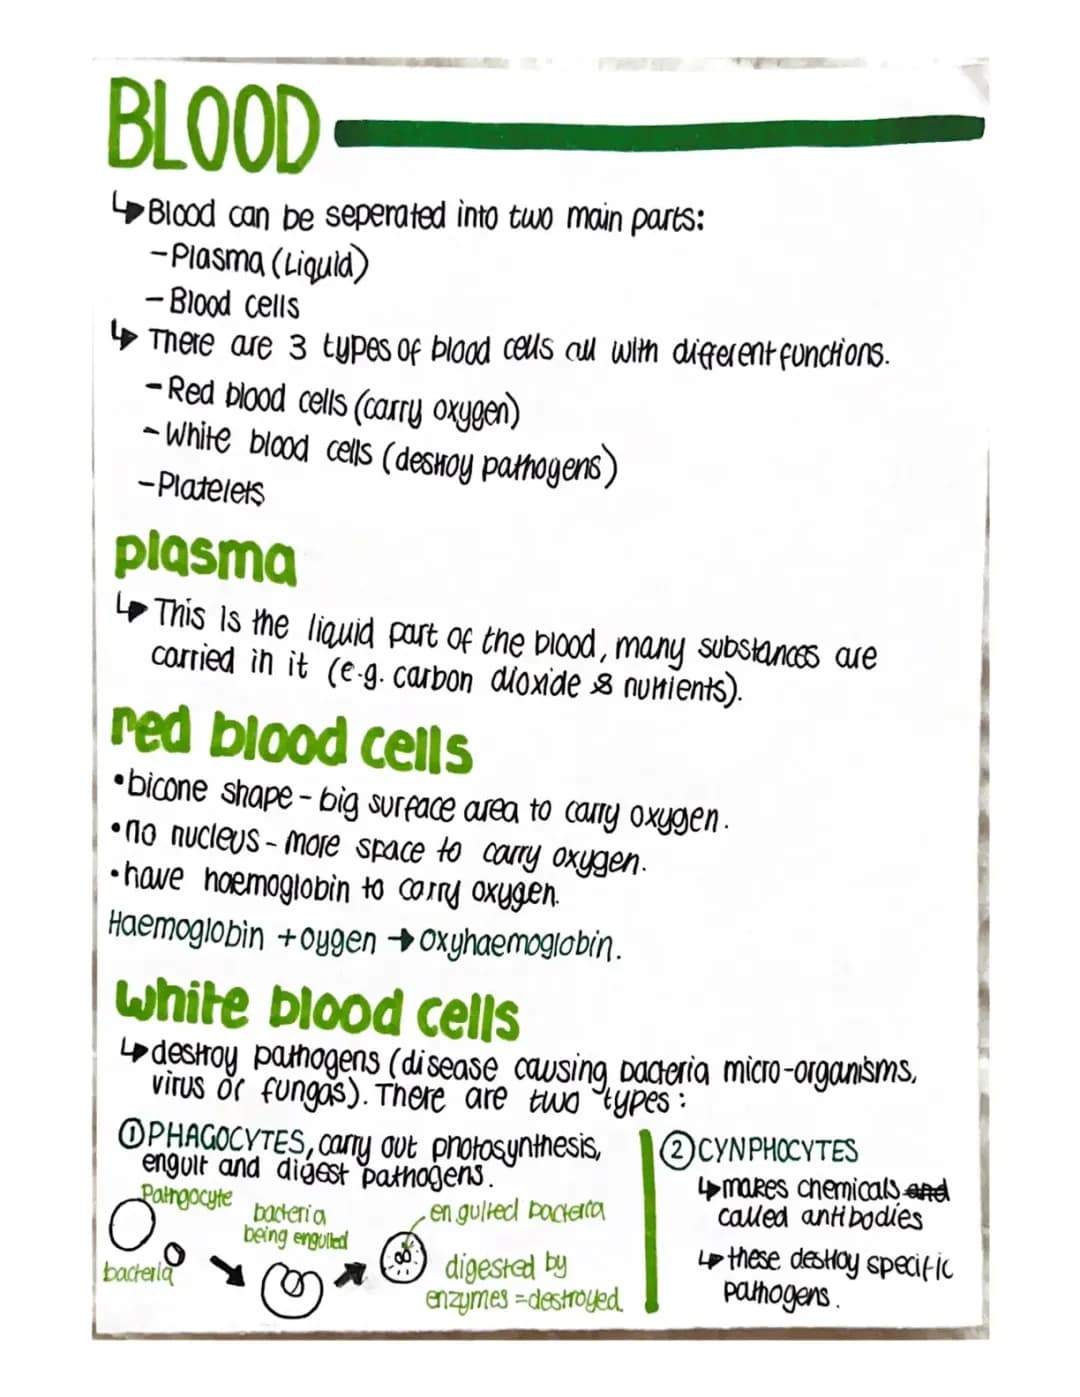 BLOOD
Blood can be seperated into two main parts:
-Plasma (Liquid)
- Blood cells
There are 3 types of blood cells all with different functions.
- Red blood cells (carry oxygen)
- White blood cells (destroy pathogens)
- Platelets
plasma
This is the liquid part of the blood, many substances are
carried in it (e.g. carbon dioxide & nutrients).
red blood cells
•bicone shape - big surface area to carry oxygen.
•no nucleus - more space to carry oxygen.
•have haemoglobin to carry oxygen.
Haemoglobin + oygen → oxyhaemoglobin.
white blood cells
destroy pathogens (disease causing bacteria micro-organisms,
virus or fungas). There are two types:
① PHAGOCYTES, carry out photosynthesis,
engulf and digest pathogens.
Pathgocyte
bacteria
bacteria
being engulfed
engulfed bacteria
digested by
enzymes = destroyed.
② CYNPHOCYTES
makes chemicals and
called antibodies
these destroy specific
pathogens.